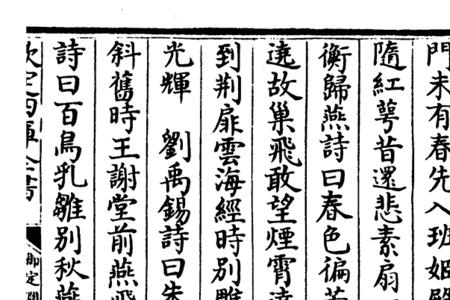 門未有春先入班姬殿
隨紅萼昔還悲素扇
衡歸燕詩曰春色徧芳
遶故巢飛敢望煙霄達
到荆扉雲海經時別雕
光輝　劉禹錫詩曰朱
斜舊時王謝堂前燕飛
詩曰百鳥乳雛別秋燕
欽定四庫全書
御定